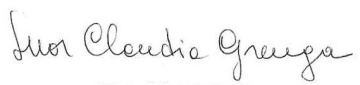 Suor Claudia Grenga